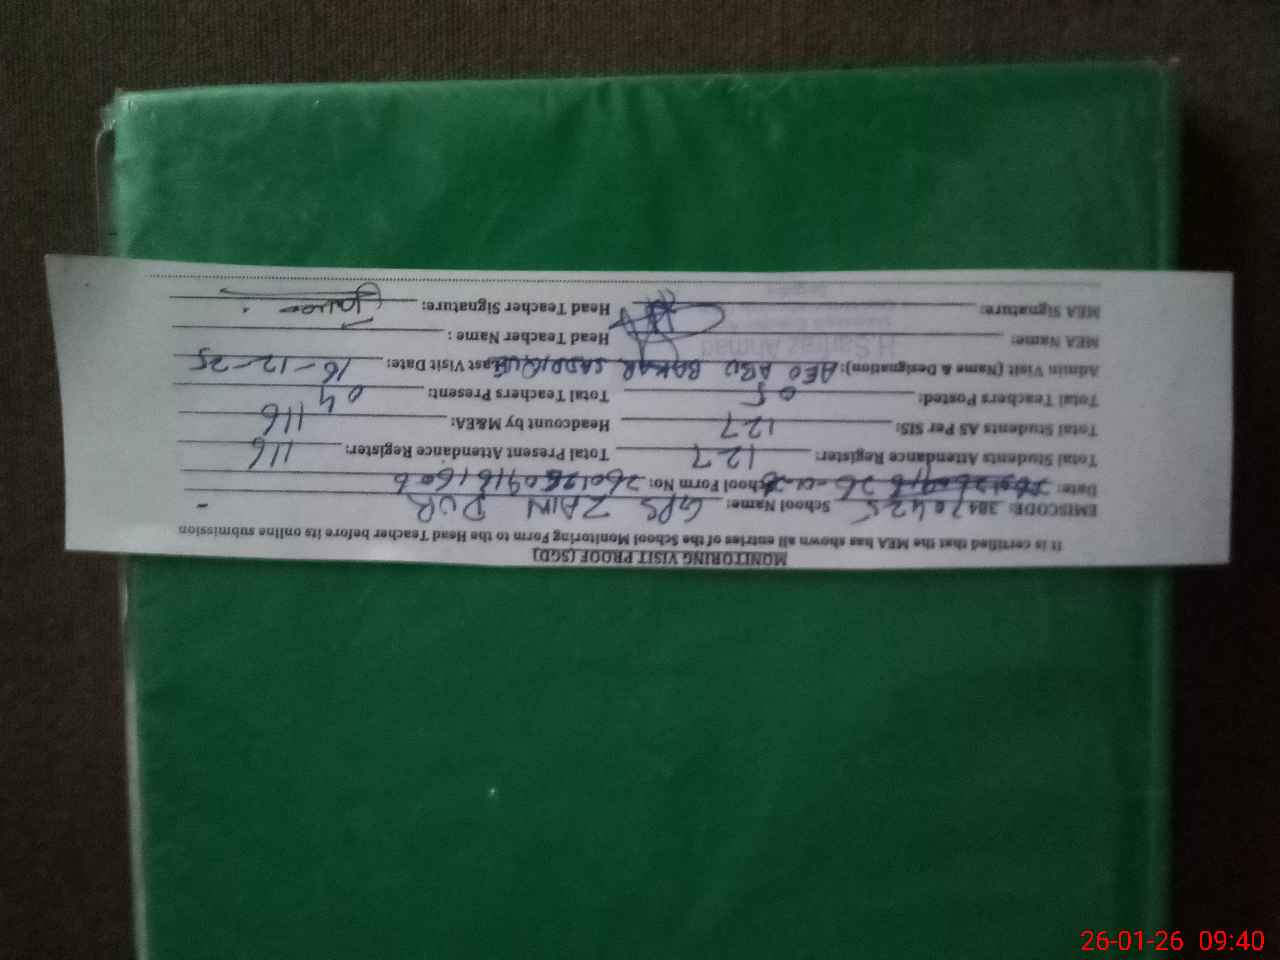 MONITORING VISIT PROOF (SGD)
It is certified that the MEA has shown all entries of the School Monitoring Form to the Head Teacher before its online submission
EMISCODE: 38470425 School Name: GPS ZAIN PUR
Date: 26-01-26 School Form No:
Total Students Attendance Register: 127 Total Present Attendance Register: 116
Total Students AS Per SIS: 127 Headcount by M&EA: 116
Total Teachers Posted: 05 Total Teachers Present: 04
Admin Visit (Name & Designation): AEO ABU BAKAR SADDIQUE Last Visit Date: 16-12-25
MEA Name: Head Teacher Name :
MEA Signature: Head Teacher Signature:
26-01-26 09:40